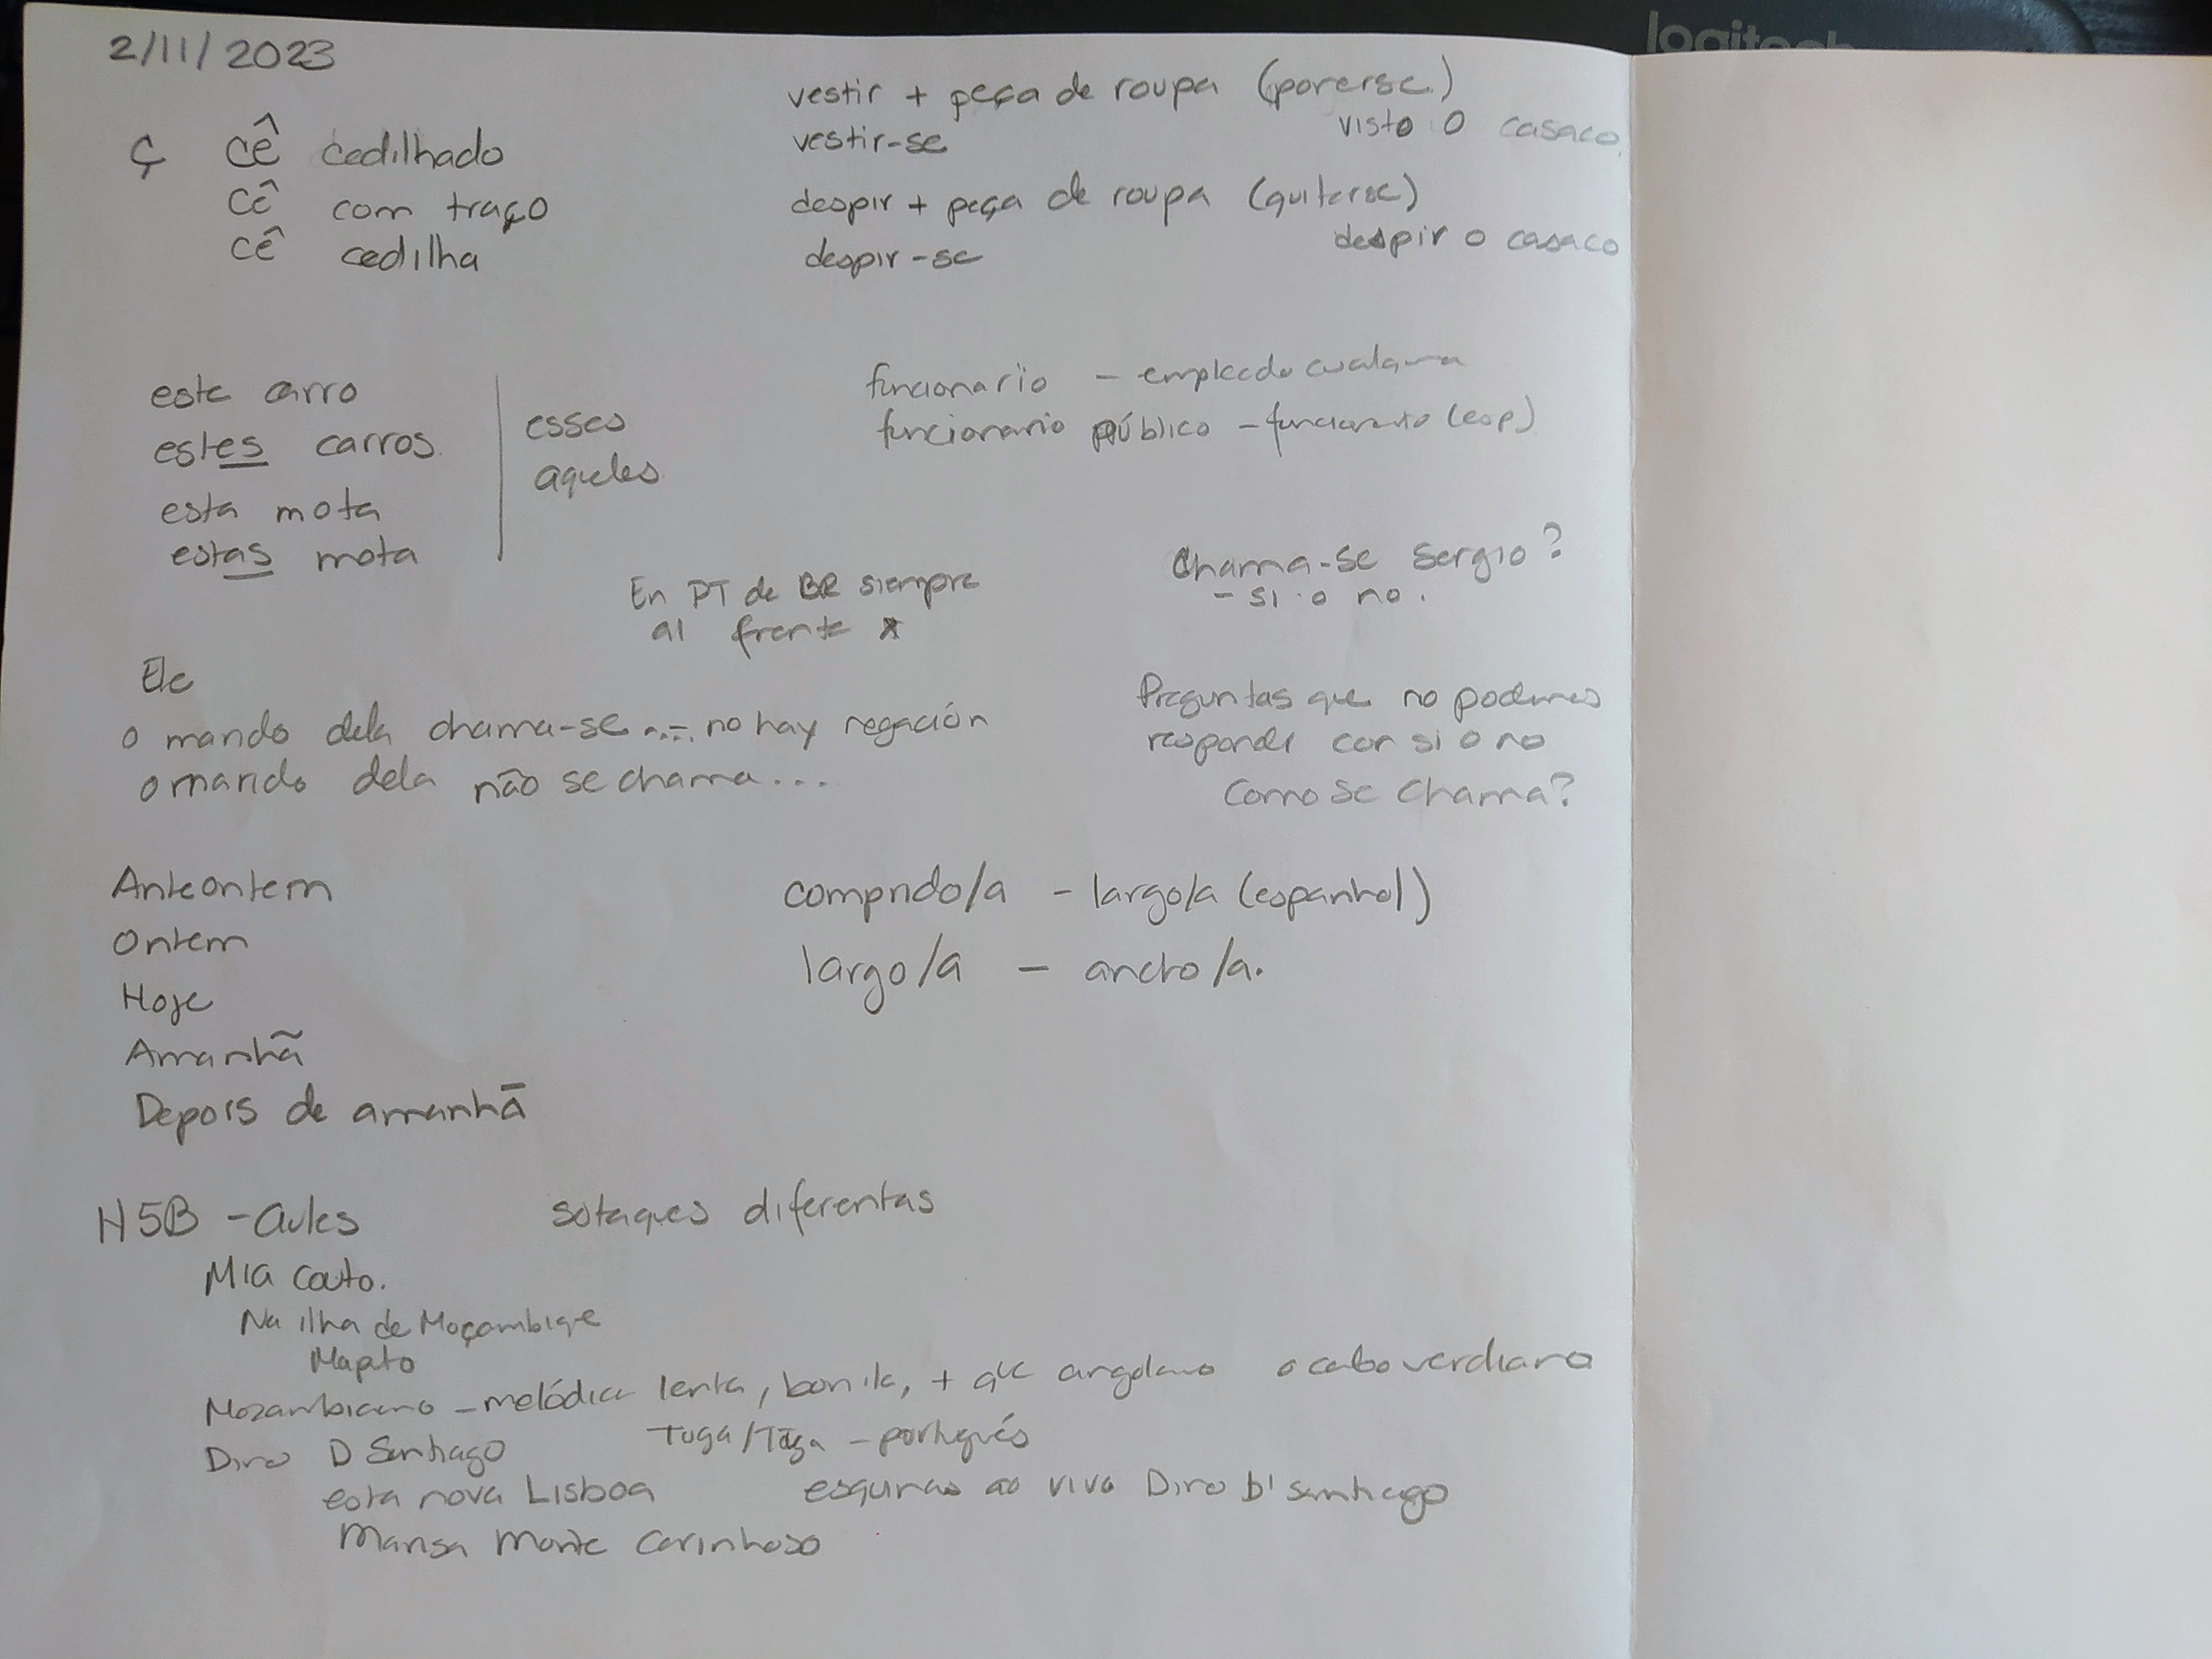 logitech
2/11/2023
ç cê cedilhado
cê com traço
cê cedilha
vestir + peça de roupa (ponerse)
visto o casaco.
vestir-se
despir + peça de roupa (quitarse)
despir o casaco
despir-se
este carro
estes carros
esta mota
estas mota
esses
aqueles
funcionario - empleado cualquiera
funcionario público - funcionario (esp)
En PT de BR siempre
al frente *
Chama-se Sergio?
- si o no.
Ele
o marido dela chama-se ... no hay negación
o marido dela não se chama...
Preguntas que no podemos
responder con si o no
Como se chama?
Anteontem
Ontem
Hoje
Amanhã
Depois de amanhã
comprido/a - largo/a (espanhol)
largo/a - ancho/a.
H5B - Aules
sotaques diferentas
Mia Couto.
Na ilha de Moçambique
Maputo
Mozambicano - melódica lenta, bonita, + que angolano o caboverdiano
Tuga/Tüga - português
Dino D Santiago
esta nova Lisboa
esquinas ao vivo Dino D'Santiago
Marisa Monte Carinhoso